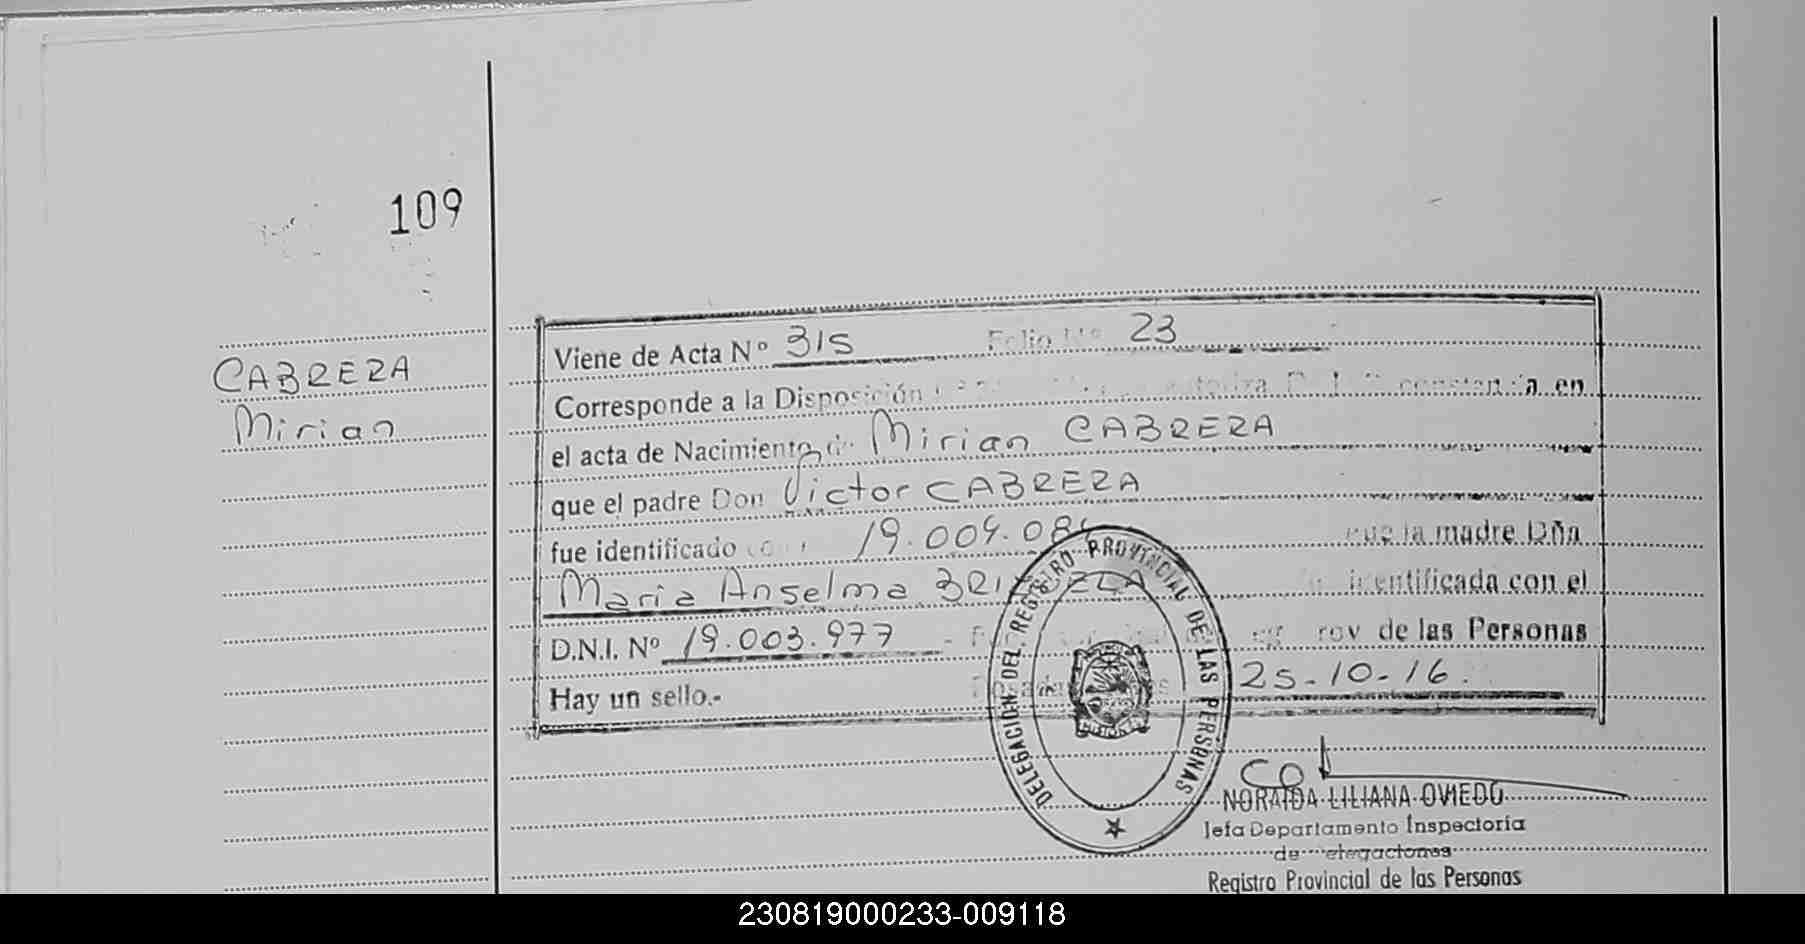 109
CABRERA
Mirian
Viene de Acta Nº 315 Folio Nº 23
Corresponde a la Disposición autoriza constancia en
el acta de Nacimiento de Mirian CABRERA
que el padre Don Victor CABRERA
fue identificado con 19.009.08 que la madre Dña
Maria Anselma identificada con el
D.N.I. Nº 19.003.977 de las Personas
Hay un sello.- 25-10-16
DELEGACIÓN DEL REGISTRO PROVINCIAL DE LAS PERSONAS
NORAIDA LILIANA OVIEDO
Jefa Departamento Inspectoría
de elegaciones
Registro Provincial de las Personas
230819000233-009118